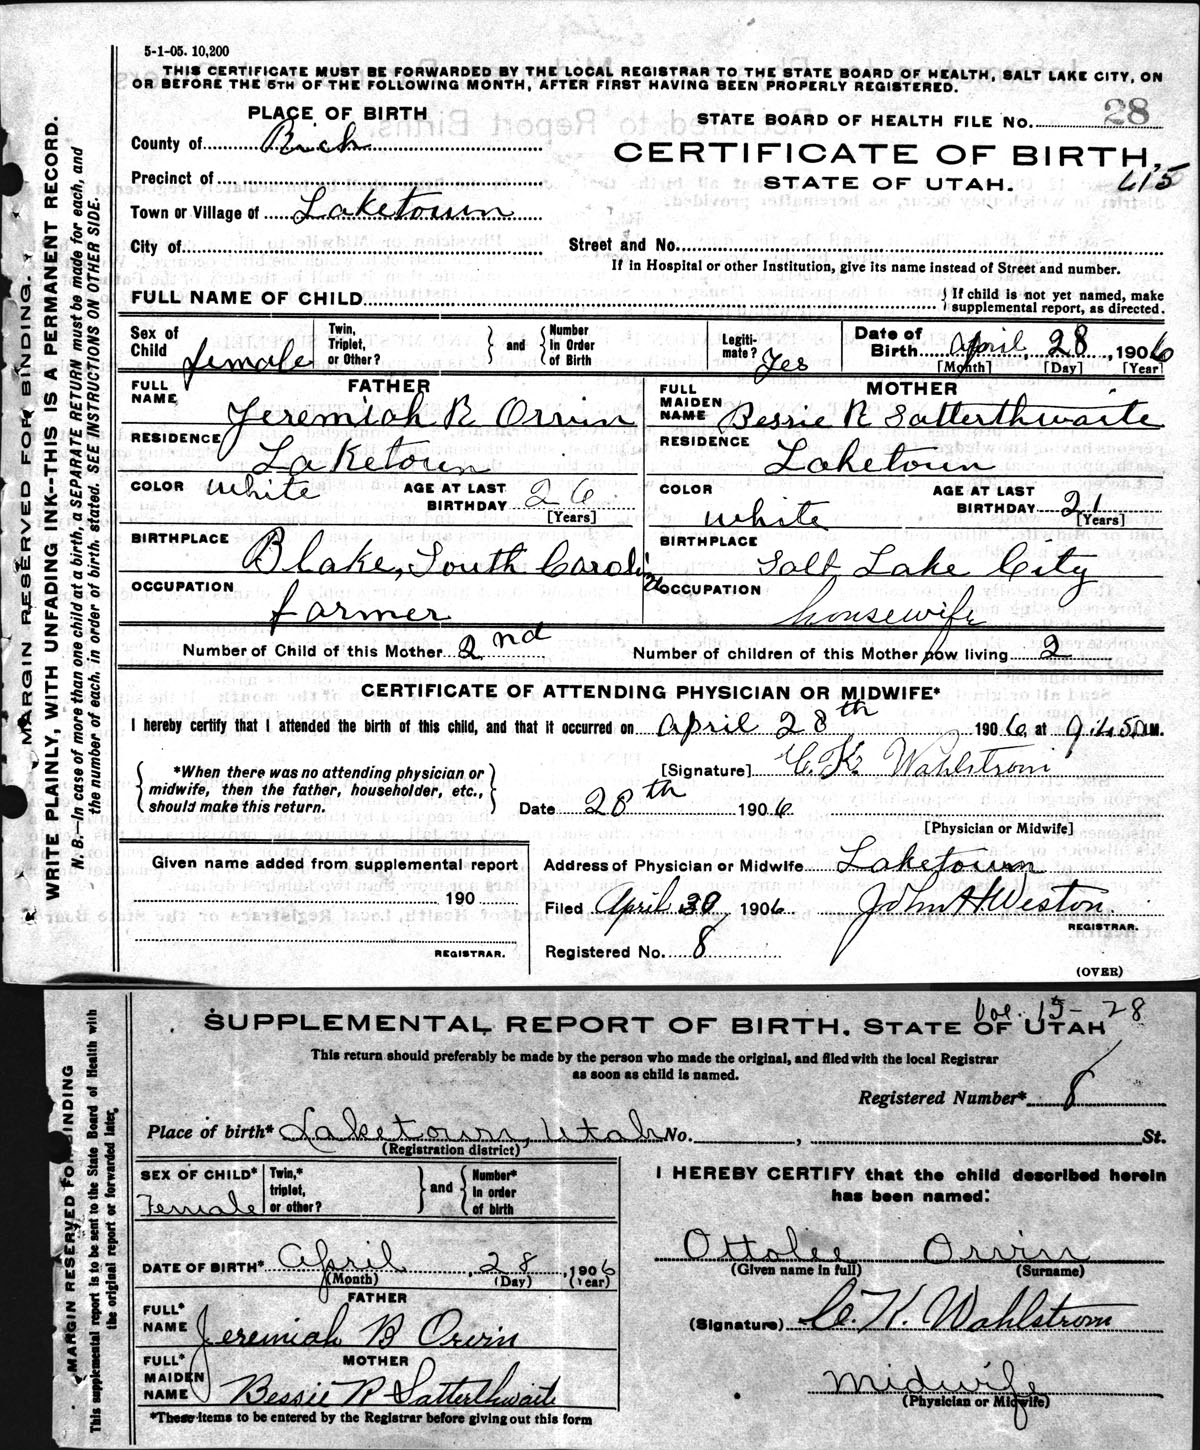 5-1-05. 10,200
THIS CERTIFICATE MUST BE FORWARDED BY THE LOCAL REGISTRAR TO THE STATE BOARD OF HEALTH, SALT LAKE CITY, ON
OR BEFORE THE 5TH OF THE FOLLOWING MONTH, AFTER FIRST HAVING BEEN PROPERLY REGISTERED.
MARGIN RESERVED FOR BINDING.
WRITE PLAINLY, WITH UNFADING INK--THIS IS A PERMANENT RECORD.
N. B.—In case of more than one child at a birth, a SEPARATE RETURN must be made for each, and
the number of each, in order of birth, stated. SEE INSTRUCTIONS ON OTHER SIDE.
PLACE OF BIRTH
STATE BOARD OF HEALTH FILE No. 28
County of Rich
CERTIFICATE OF BIRTH,
Precinct of
STATE OF UTAH. 615
Town or Village of Laketown
City of
Street and No.
If in Hospital or other Institution, give its name instead of Street and number.
FULL NAME OF CHILD
If child is not yet named, make
supplemental report, as directed.
Sex of Child female
Twin, Triplet, or Other?
and
Number In Order of Birth
Legiti-mate? Yes
Date of Birth April, 28, 1906
[Month] [Day] [Year]
FATHER
MOTHER
FULL NAME Jeremiah B Orvin
FULL MAIDEN NAME Bessie R Satterthwaite
RESIDENCE Laketown
RESIDENCE Laketown
COLOR white AGE AT LAST BIRTHDAY 26 [Years]
COLOR white AGE AT LAST BIRTHDAY 21 [Years]
BIRTHPLACE Blake, South Carolina
BIRTHPLACE Salt Lake City
OCCUPATION farmer
OCCUPATION housewife
Number of Child of this Mother 2nd
Number of children of this Mother now living 2
CERTIFICATE OF ATTENDING PHYSICIAN OR MIDWIFE*
I hereby certify that I attended the birth of this child, and that it occurred on April 28th 1906, at 9:45 M.
*When there was no attending physician or
midwife, then the father, householder, etc.,
should make this return.
[Signature] C. K. Wahlstrom
Date 28th 1906
[Physician or Midwife]
Given name added from supplemental report
190
REGISTRAR.
Address of Physician or Midwife Laketown
Filed April 30, 1906 John H Weston
REGISTRAR.
Registered No. 8
(OVER)
MARGIN RESERVED FOR BINDING
This supplemental report is to be sent to the State Board of Health with
the original report or forwarded later.
Vol. 15- 28
SUPPLEMENTAL REPORT OF BIRTH, STATE OF UTAH
This return should preferably be made by the person who made the original, and filed with the local Registrar
as soon as child is named.
Registered Number* 8
Place of birth* Laketown, Utah No. , St.
(Registration district)
SEX OF CHILD* Female
Twin,* triplet, or other?
and
Number* In order of birth
I HEREBY CERTIFY that the child described herein
has been named:
DATE OF BIRTH* April, 28, 1906
(Month) (Day) (Year)
Ottolee Orvin
(Given name in full) (Surname)
FATHER
FULL* NAME Jeremiah B Orvin
(Signature) C. K. Wahlstrom
MOTHER
FULL* MAIDEN NAME Bessie R Satterthwaite
midwife
(Physician or Midwife)
*These items to be entered by the Registrar before giving out this form